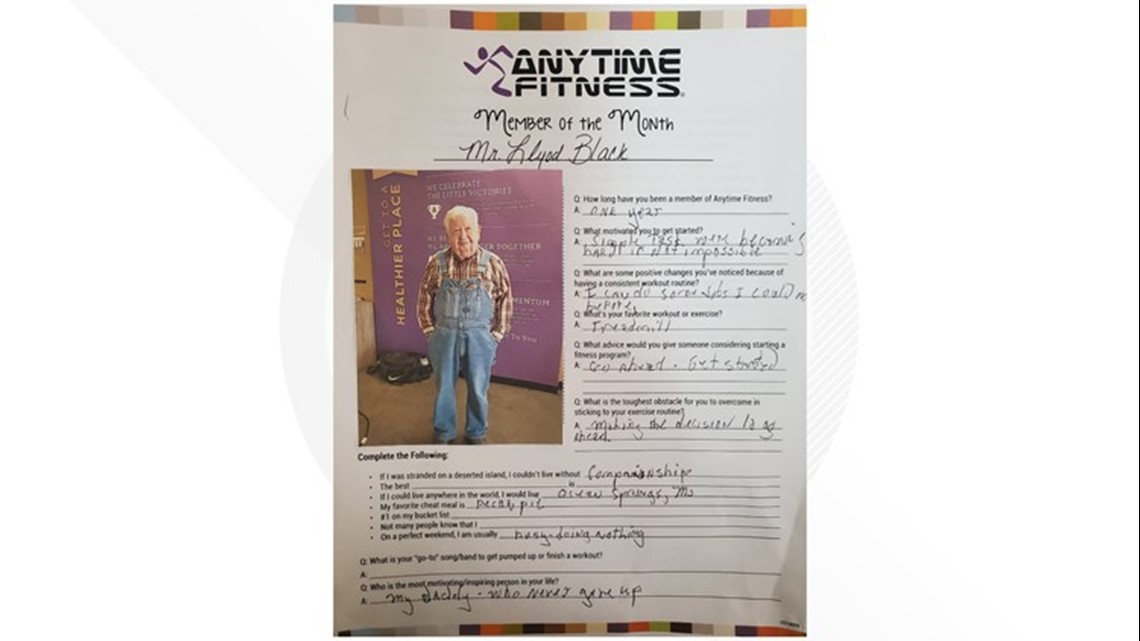 ANYTIME
FITNESS
Member of the Month
Mr. Llyod Black
GET TO A
HEALTHIER PLACE
WE CELEBRATE
THE LITTLE VICTORIES
TOGETHER
Q: How long have you been a member of Anytime Fitness?
A: ONE year
Q: What motivated you to get started?
A: Simple task were becoming
hard if not impossible
Q: What are some positive changes you've noticed because of
having a consistent workout routine?
A: I can do some jobs I could no
before.
Q: What's your favorite workout or exercise?
A: Treadmill
Q: What advice would you give someone considering starting a
fitness program?
A: Go ahead - Get started
Q: What is the toughest obstacle for you to overcome in
sticking to your exercise routine?
A: Making the decision to go
ahead.
Complete the Following:
• If I was stranded on a deserted island, I couldn't live without Companionship
• The best is
• If I could live anywhere in the world, I would live Ocean Springs, Ms
• My favorite cheat meal is pecan pie
• #1 on my bucket list
• Not many people know that I
• On a perfect weekend, I am usually busy-doing nothing
Q: What is your "go-to" song/band to get pumped up or finish a workout?
A:
Q: Who is the most motivating/inspiring person in your life?
A: My daddy - who never gave up